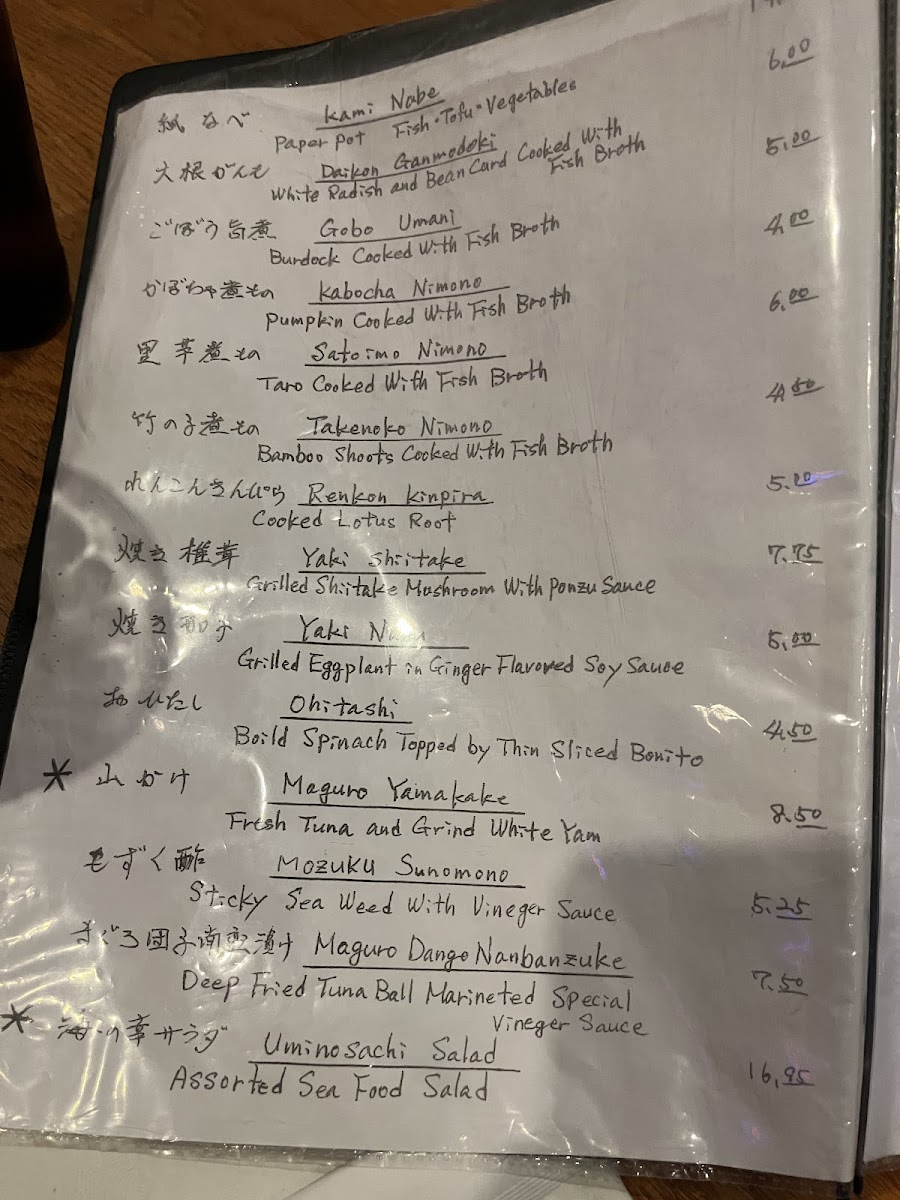 紙なべ Kami Nabe
Paper Pot Fish・Tofu・Vegetables
大根がんも Daikon Ganmodoki 6.00
White Radish and Bean Card Cooked With
Fish Broth
ごぼう旨煮 Gobo Umani 5.00
Burdock Cooked With Fish Broth
かぼちゃ煮もの Kabocha Nimono 4.00
Pumpkin Cooked With Fish Broth
里芋煮もの Satoimo Nimono 6.00
Taro Cooked With Fish Broth
竹の子煮もの Takenoko Nimono 4.50
Bamboo Shoots Cooked With Fish Broth
れんこんきんぴら Renkon Kinpira 5.00
Cooked Lotus Root
焼き椎茸 Yaki Shiitake 7.75
Grilled Shiitake Mushroom With Ponzu Sauce
焼き茄子 Yaki 5.00
Grilled Eggplant in Ginger Flavored Soy Sauce
おひたし Ohitashi 4.50
Boild Spinach Topped by Thin Sliced Bonito
* 山かけ Maguro Yamakake 8.50
Fresh Tuna and Grind White Yam
もずく酢 Mozuku Sunomono 5.25
Sticky Sea Weed With Vineger Sauce
まぐろ団子南蛮漬け Maguro Dango Nanbanzuke 7.50
Deep Fried Tuna Ball Marineted Special
Vineger Sauce
* 海の幸サラダ Uminosachi Salad 16.95
Assorted Sea Food Salad